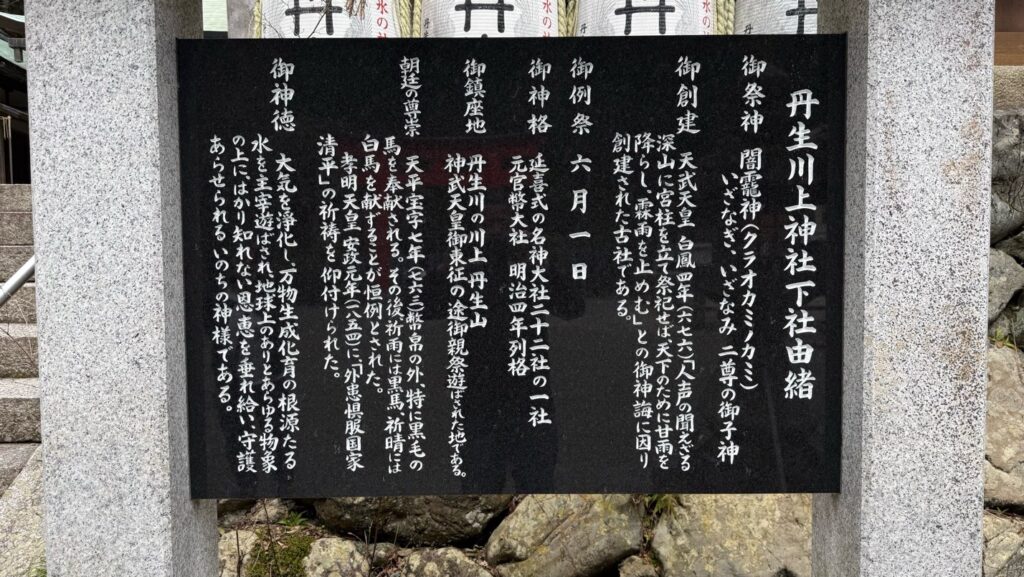 丹生川上神社下社由緒
御祭神 闇龗神(クラオカミノカミ)
いざなぎ、いざなみ 二尊の御子神
御創建 天武天皇 白鳳四年(六七六)「人声の聞えざる
深山に宮柱を立て祭祀せば、天下のために甘雨を
降らし、霖雨を止めむ」との御神誨に因り
創建された古社である。
御例祭 六月一日
御神格 延喜式の名神大社二十二社の一社
元官幣大社 明治四年列格
御鎮座地 丹生川の川上 丹生山
神武天皇御東征の途、御親祭遊ばされた地である。
朝廷の尊崇 天平宝字七年(七六三)幣帛の外、特に黒毛の
馬を奉献される。その後祈雨には黒馬、祈晴には
白馬を献ずることが恒例とされた。
孝明天皇 安政元年(一八五四)に、「外患惧服国家
清平」の祈祷を仰付けられた。
御神徳 大気を浄化し、万物生成化育の根源たる
水を主宰遊ばされ、地球上のありとあらゆる物象
の上に、はかり知れない恩恵を垂れ給い、守護
あらせられる、いのちの神様である。